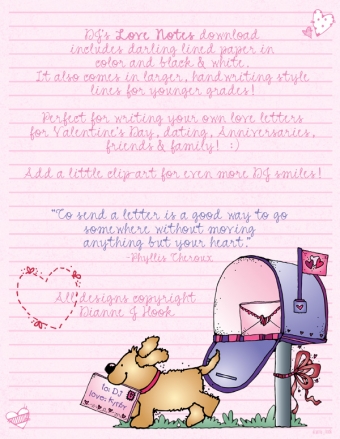 DJ's Love Notes download
includes darling lined paper in
color and black & white.
It also comes in larger, handwriting style
lines for younger grades!
Perfect for writing your own love letters
for Valentine's Day, dating, Anniversaries,
friends & family! :)
Add a little clip-art for even more DJ smiles!
"To send a letter is a good way to go
somewhere without moving
anything but your heart."
-Phyllis Theroux
All designs copyright
Dianne J Hook
To: DJ
love, Kyrby